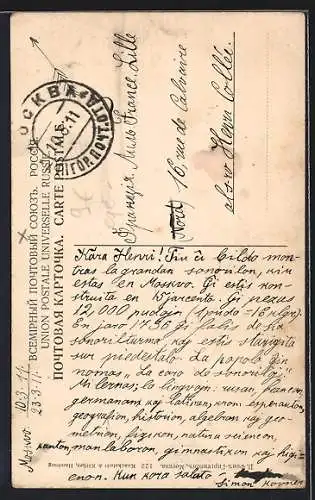 ВСЕМІРНЫЙ ПОЧТОВЫЙ СОЮЗЪ. РОССІЯ
UNION POSTALE UNIVERSELLE RUSSIE
ПОЧТОВАЯ КАРТОЧКА. CARTE POSTALE.
МОСКВА
11
ГОР. ПОЧТ.
Франція. Лилль. France. Lille
(Nord) 16, rue de Calvaire
ĉe s-ro Henri Collée.
Kara Henri! Tiu ĉi bildo mon-
tras la grandan sonorilon, kiu
estas en Moskvo. Ĝi estis kon-
struita en 15 jarcento. Ĝi pezas
12,000 pudojn (1 pudo = 16 klgr).
En jaro 1736 ĝi falis de sia
sonorilturno kaj estis starigita
sur piedestalo. La popolo ĝin
nomas „La caro de sonoriloj".
Mi lernas: la lingvojn: rusan, francan,
germanan kaj latinan, krom esperanton,
geografion, historion, algebran kaj ge-
metrion, fizikon, natursciencon,
kanton, manlaboron, gimnastikon kaj higi-
enon. Kun kora saluto
Simon
Moskvo. 10-3-11.
23-3-11.